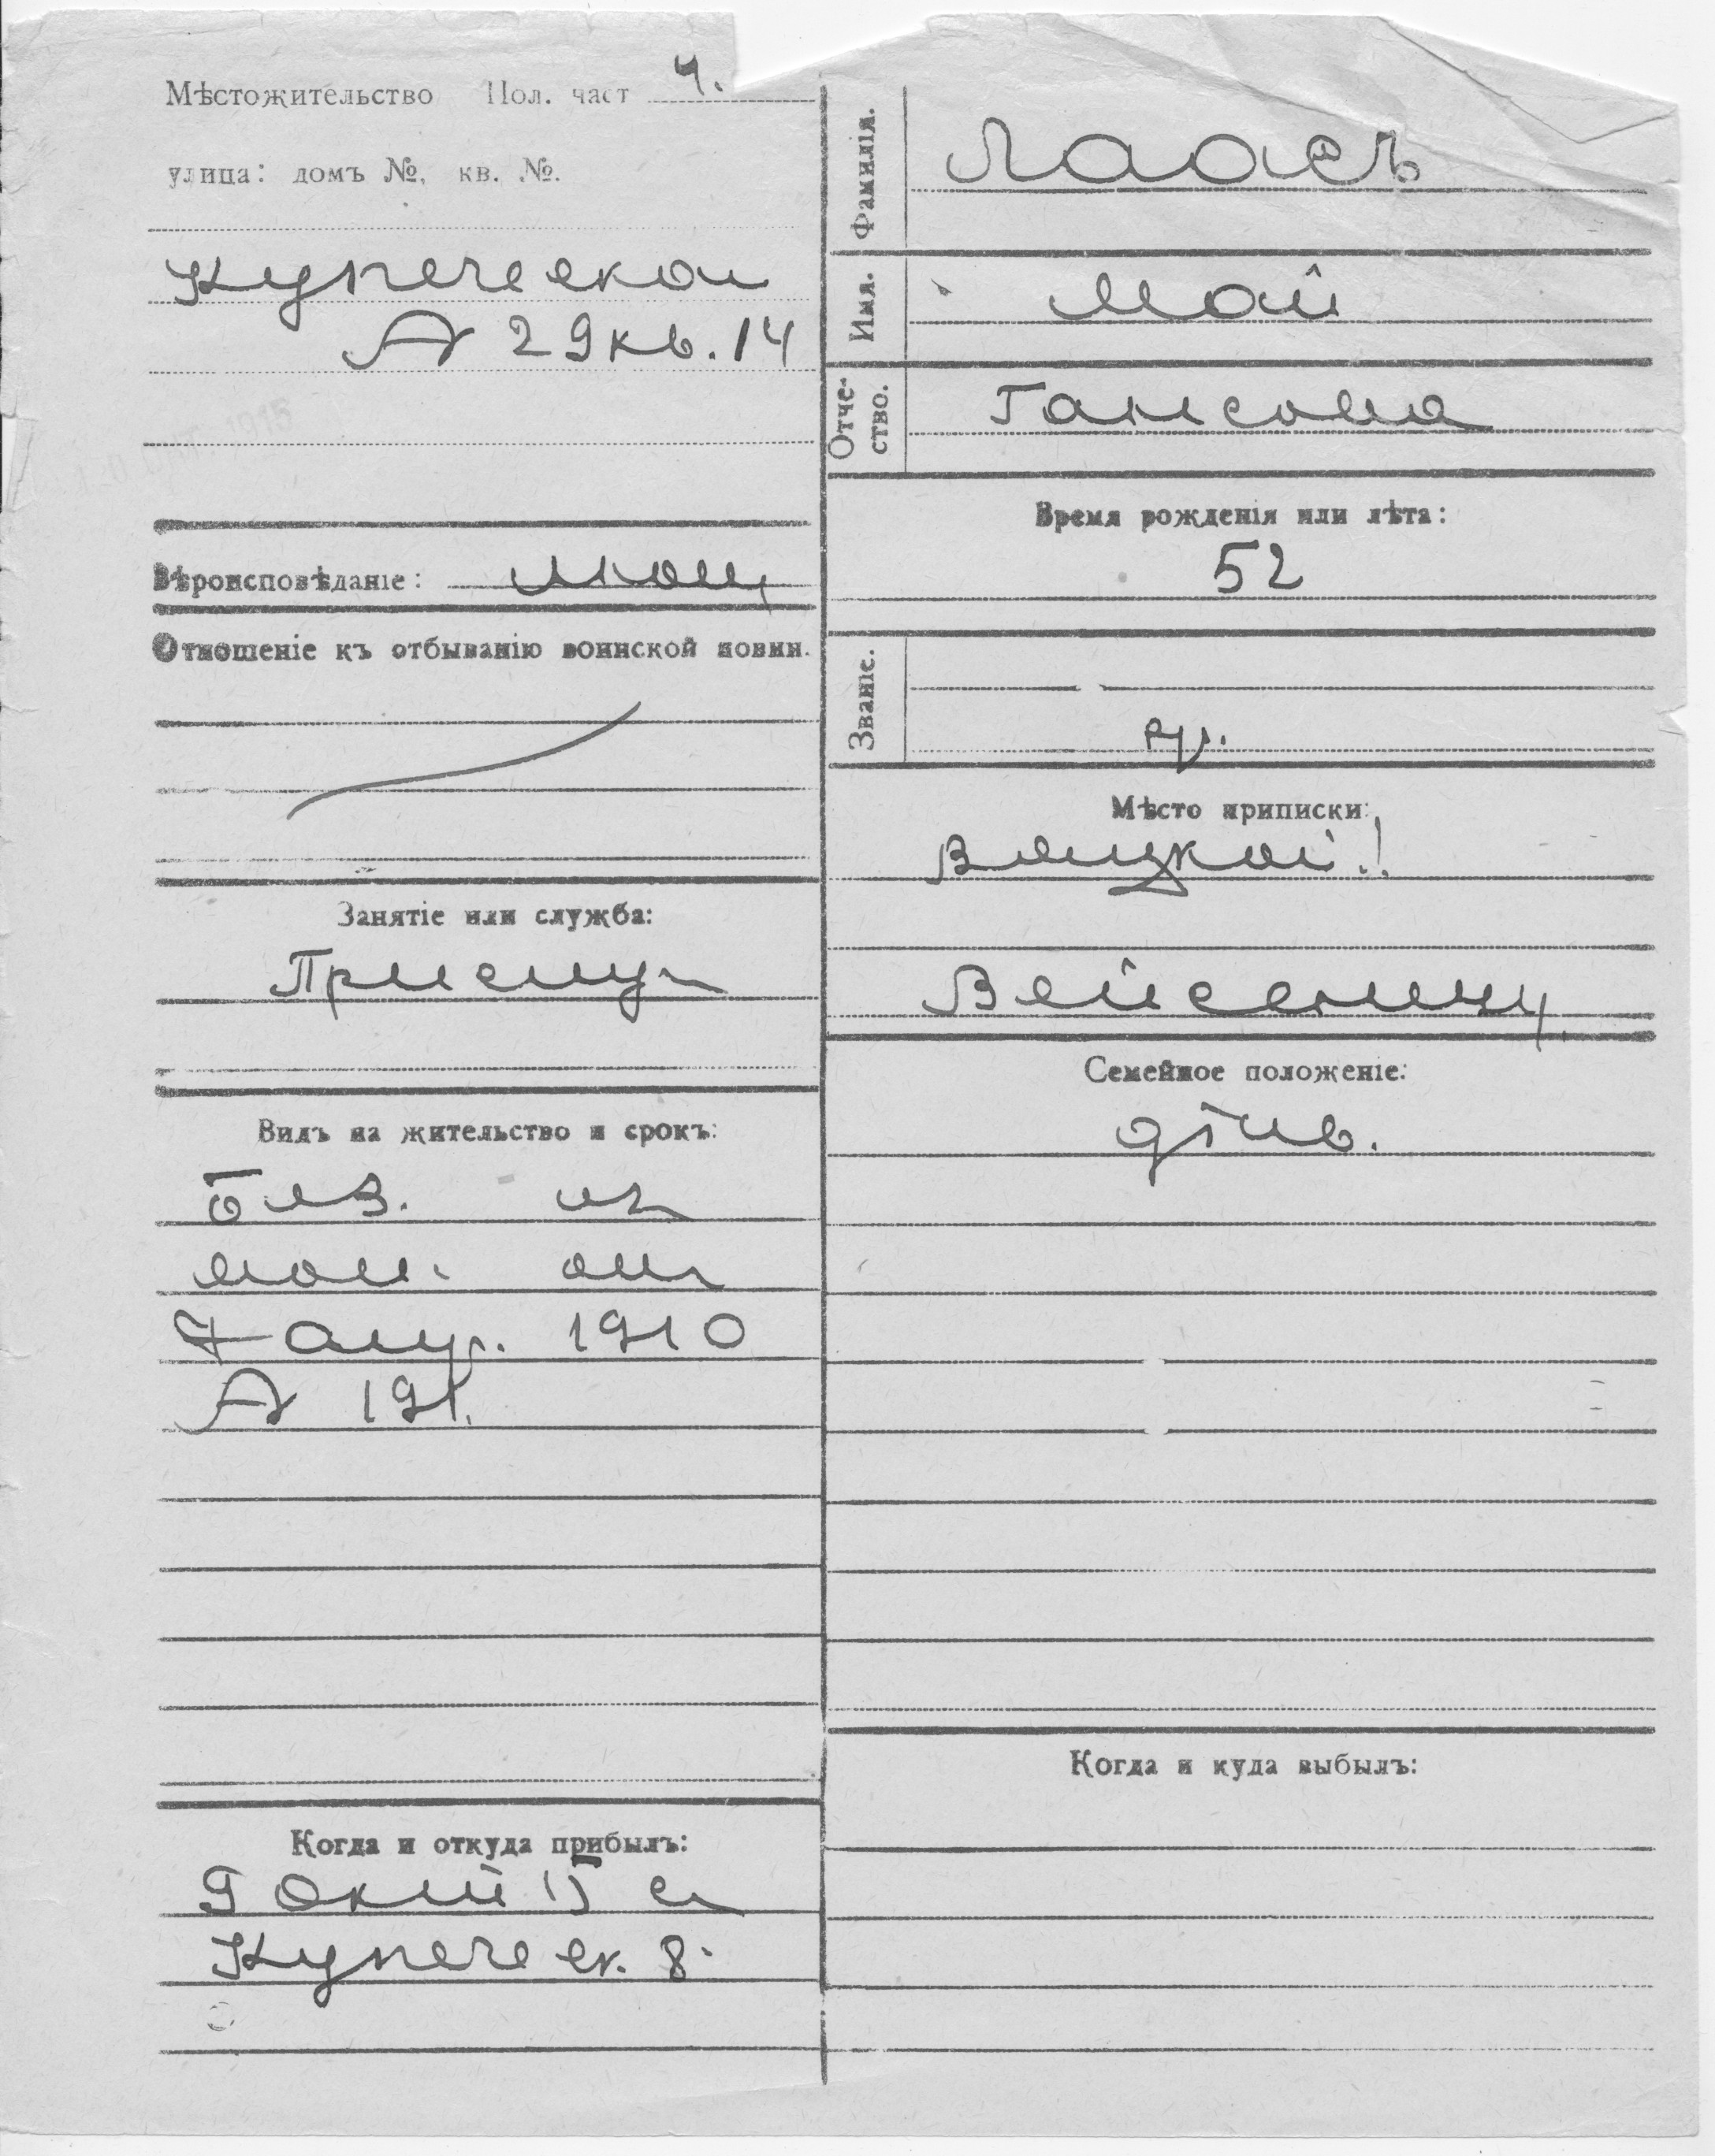 Мѣстожительство Пол. част 4.
улица: домъ №, кв. №.
Купеческая
№ 29 кв. 14
1915
Вѣроисповѣданіе: лют
Отношеніе къ отбыванію воинской повин.
Занятіе или служба:
Прислуга
Видъ на жительство и срокъ:
без.
от
7 апр. 1910
№ 191.
Когда и откуда прибылъ:
9 Окт 15 с
Купеческ. 8.
Фамилія.
Лаасъ
Имя.
Май
Отче-
ство.
Гансова
Время рожденія или лѣта:
52
Званіе.
кр.
Мѣсто приписки:
Вейсеншт.
Семейное положеніе:
дѣв.
Когда и куда выбылъ: